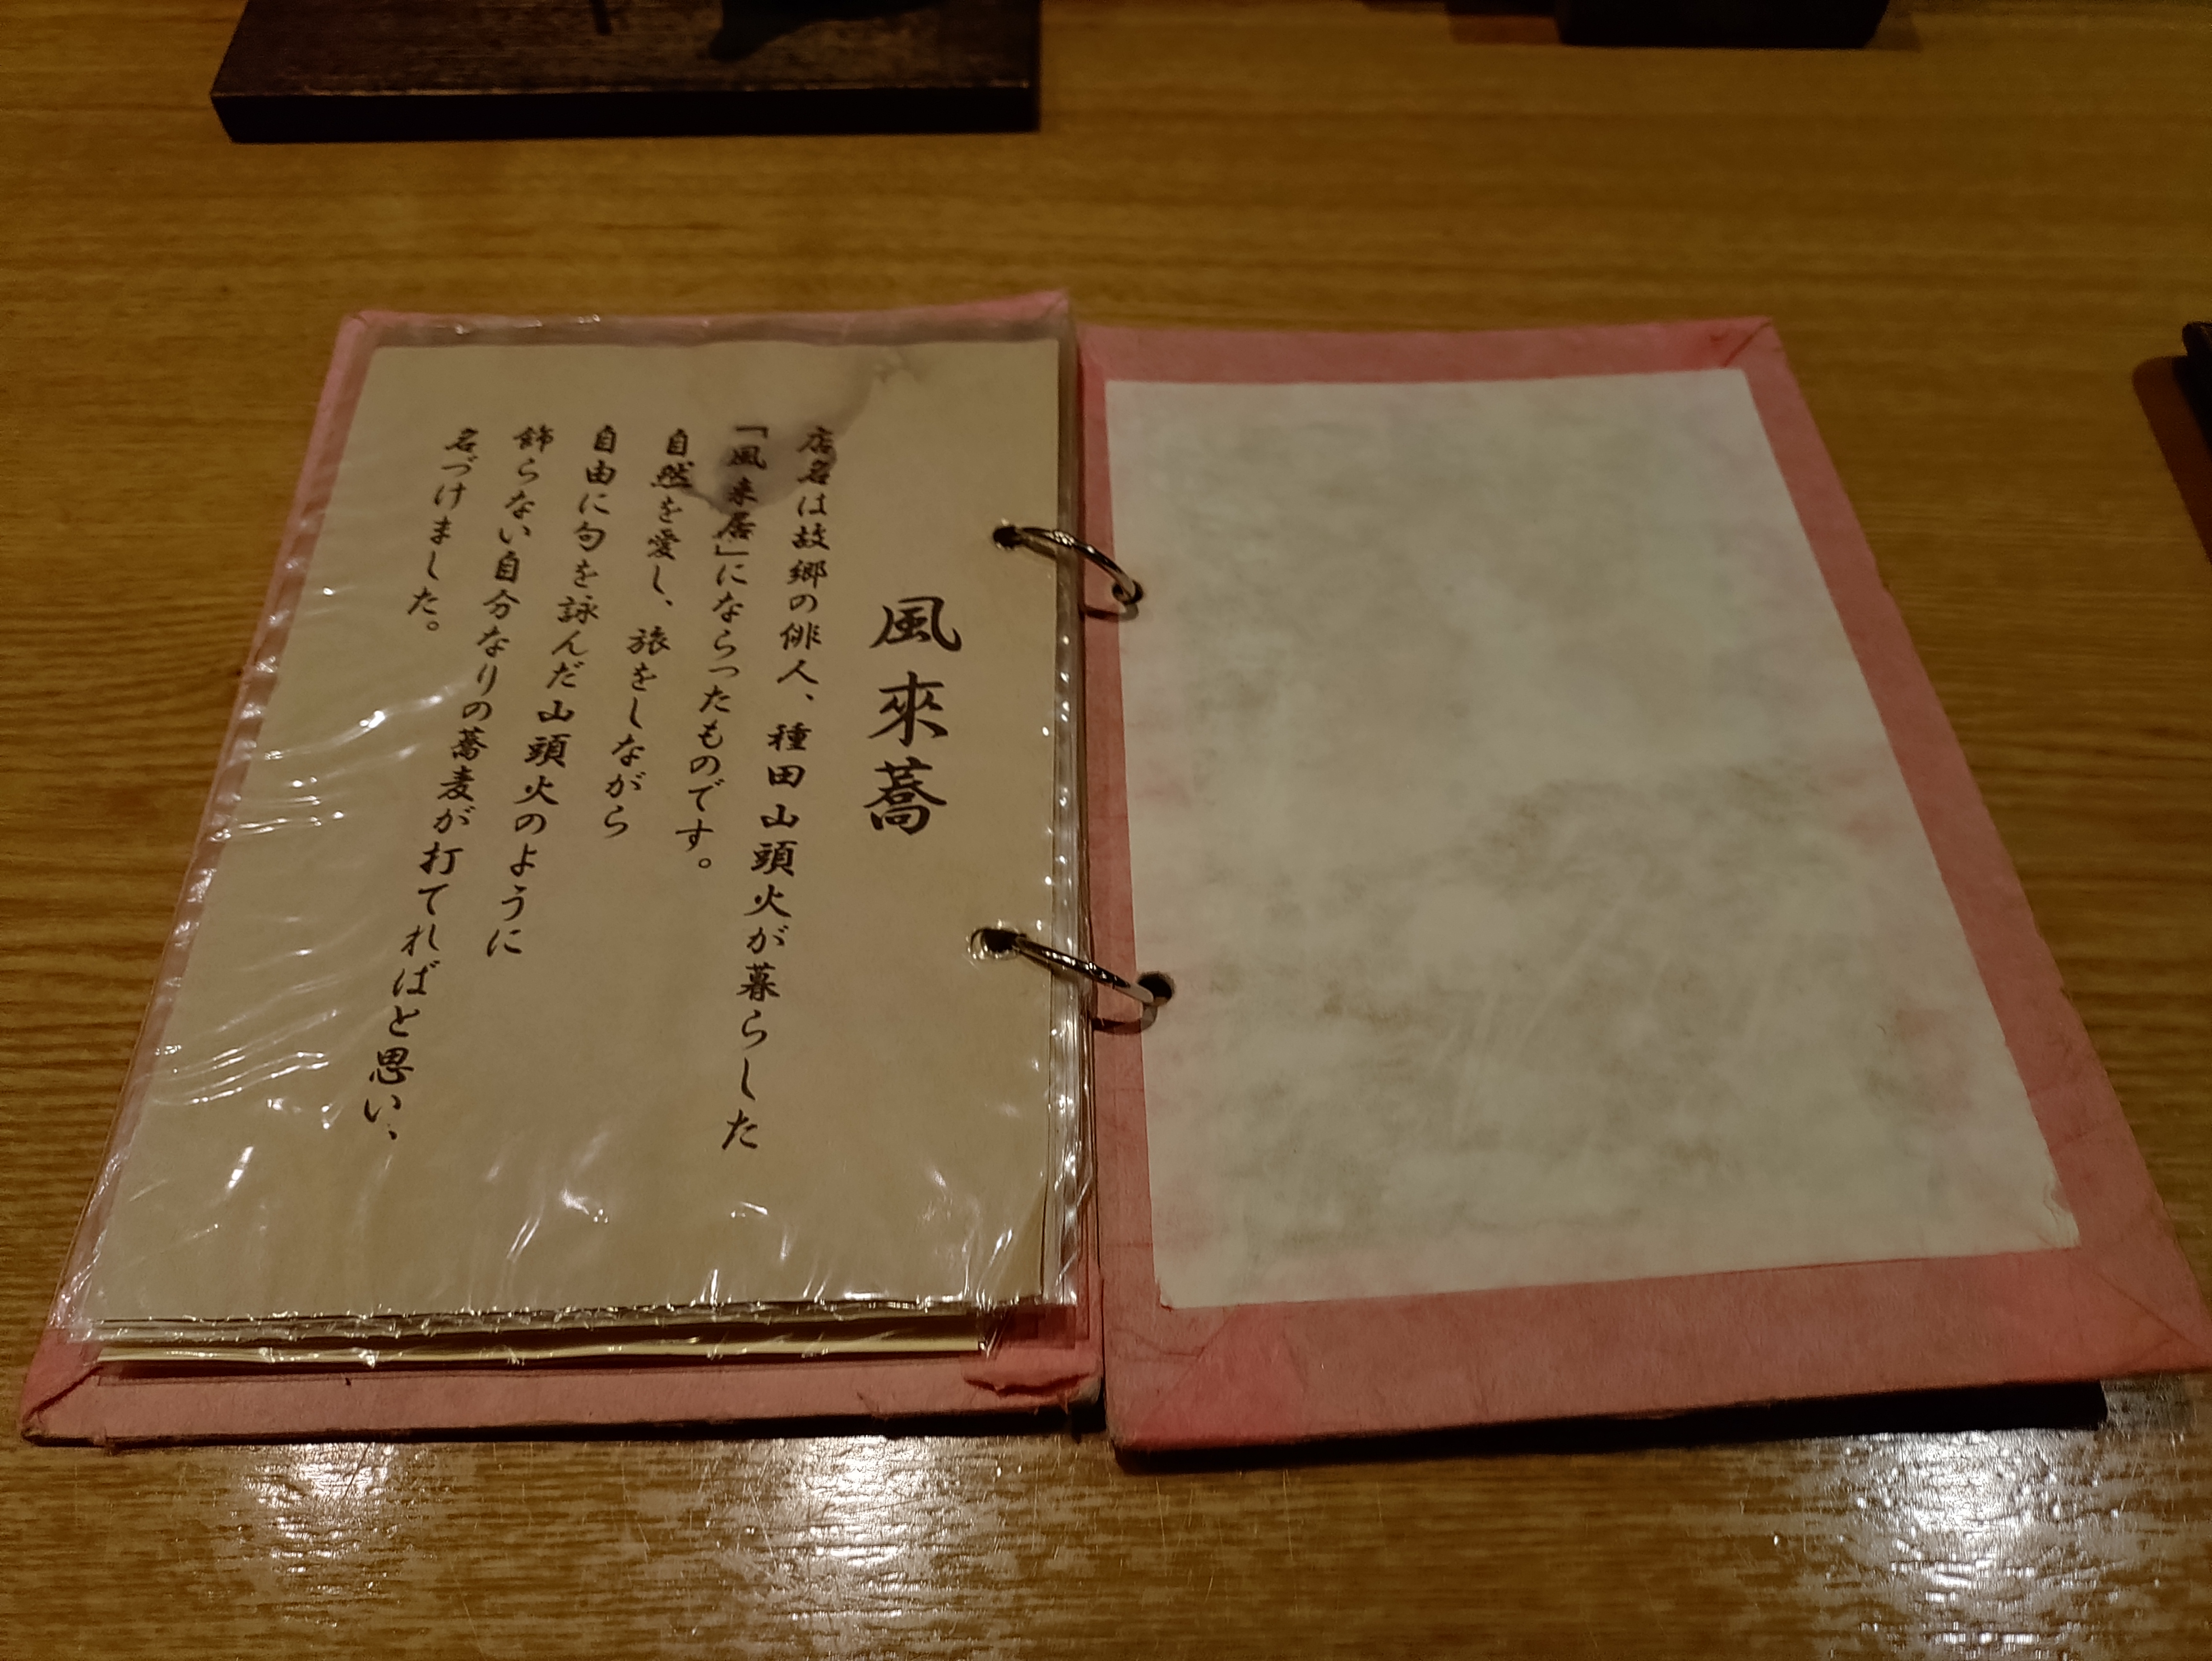 風來蕎
店名は故郷の俳人、種田山頭火が暮らした
「風来居」にならったものです。
自然を愛し、旅をしながら
自由に句を詠んだ山頭火のように
飾らない自分なりの蕎麦が打てればと思い、
名づけました。